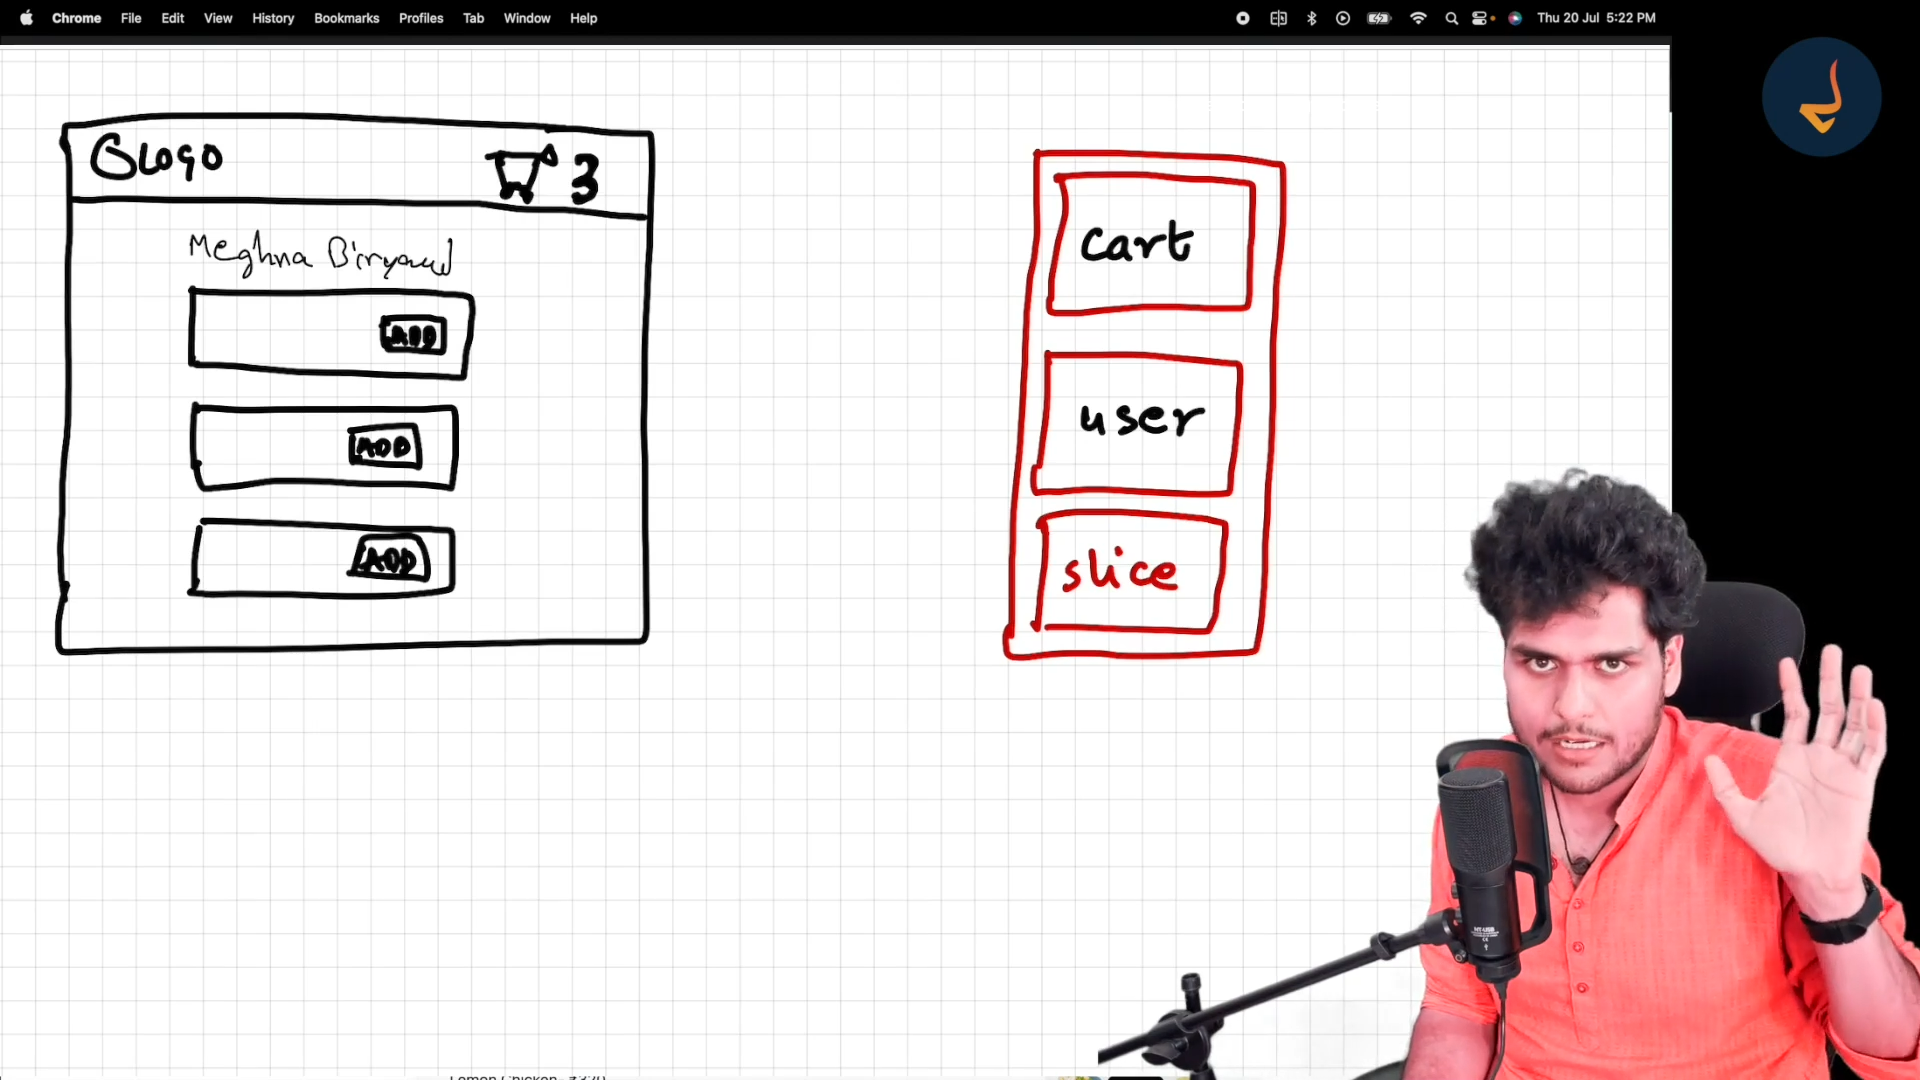 Chrome File Edit View History Bookmarks Profiles Tab Window Help Thu 20 Jul 5:22 PM
Logo 3
Meghna
ADD
ADD
ADD
cart
user
slice
NT-USB